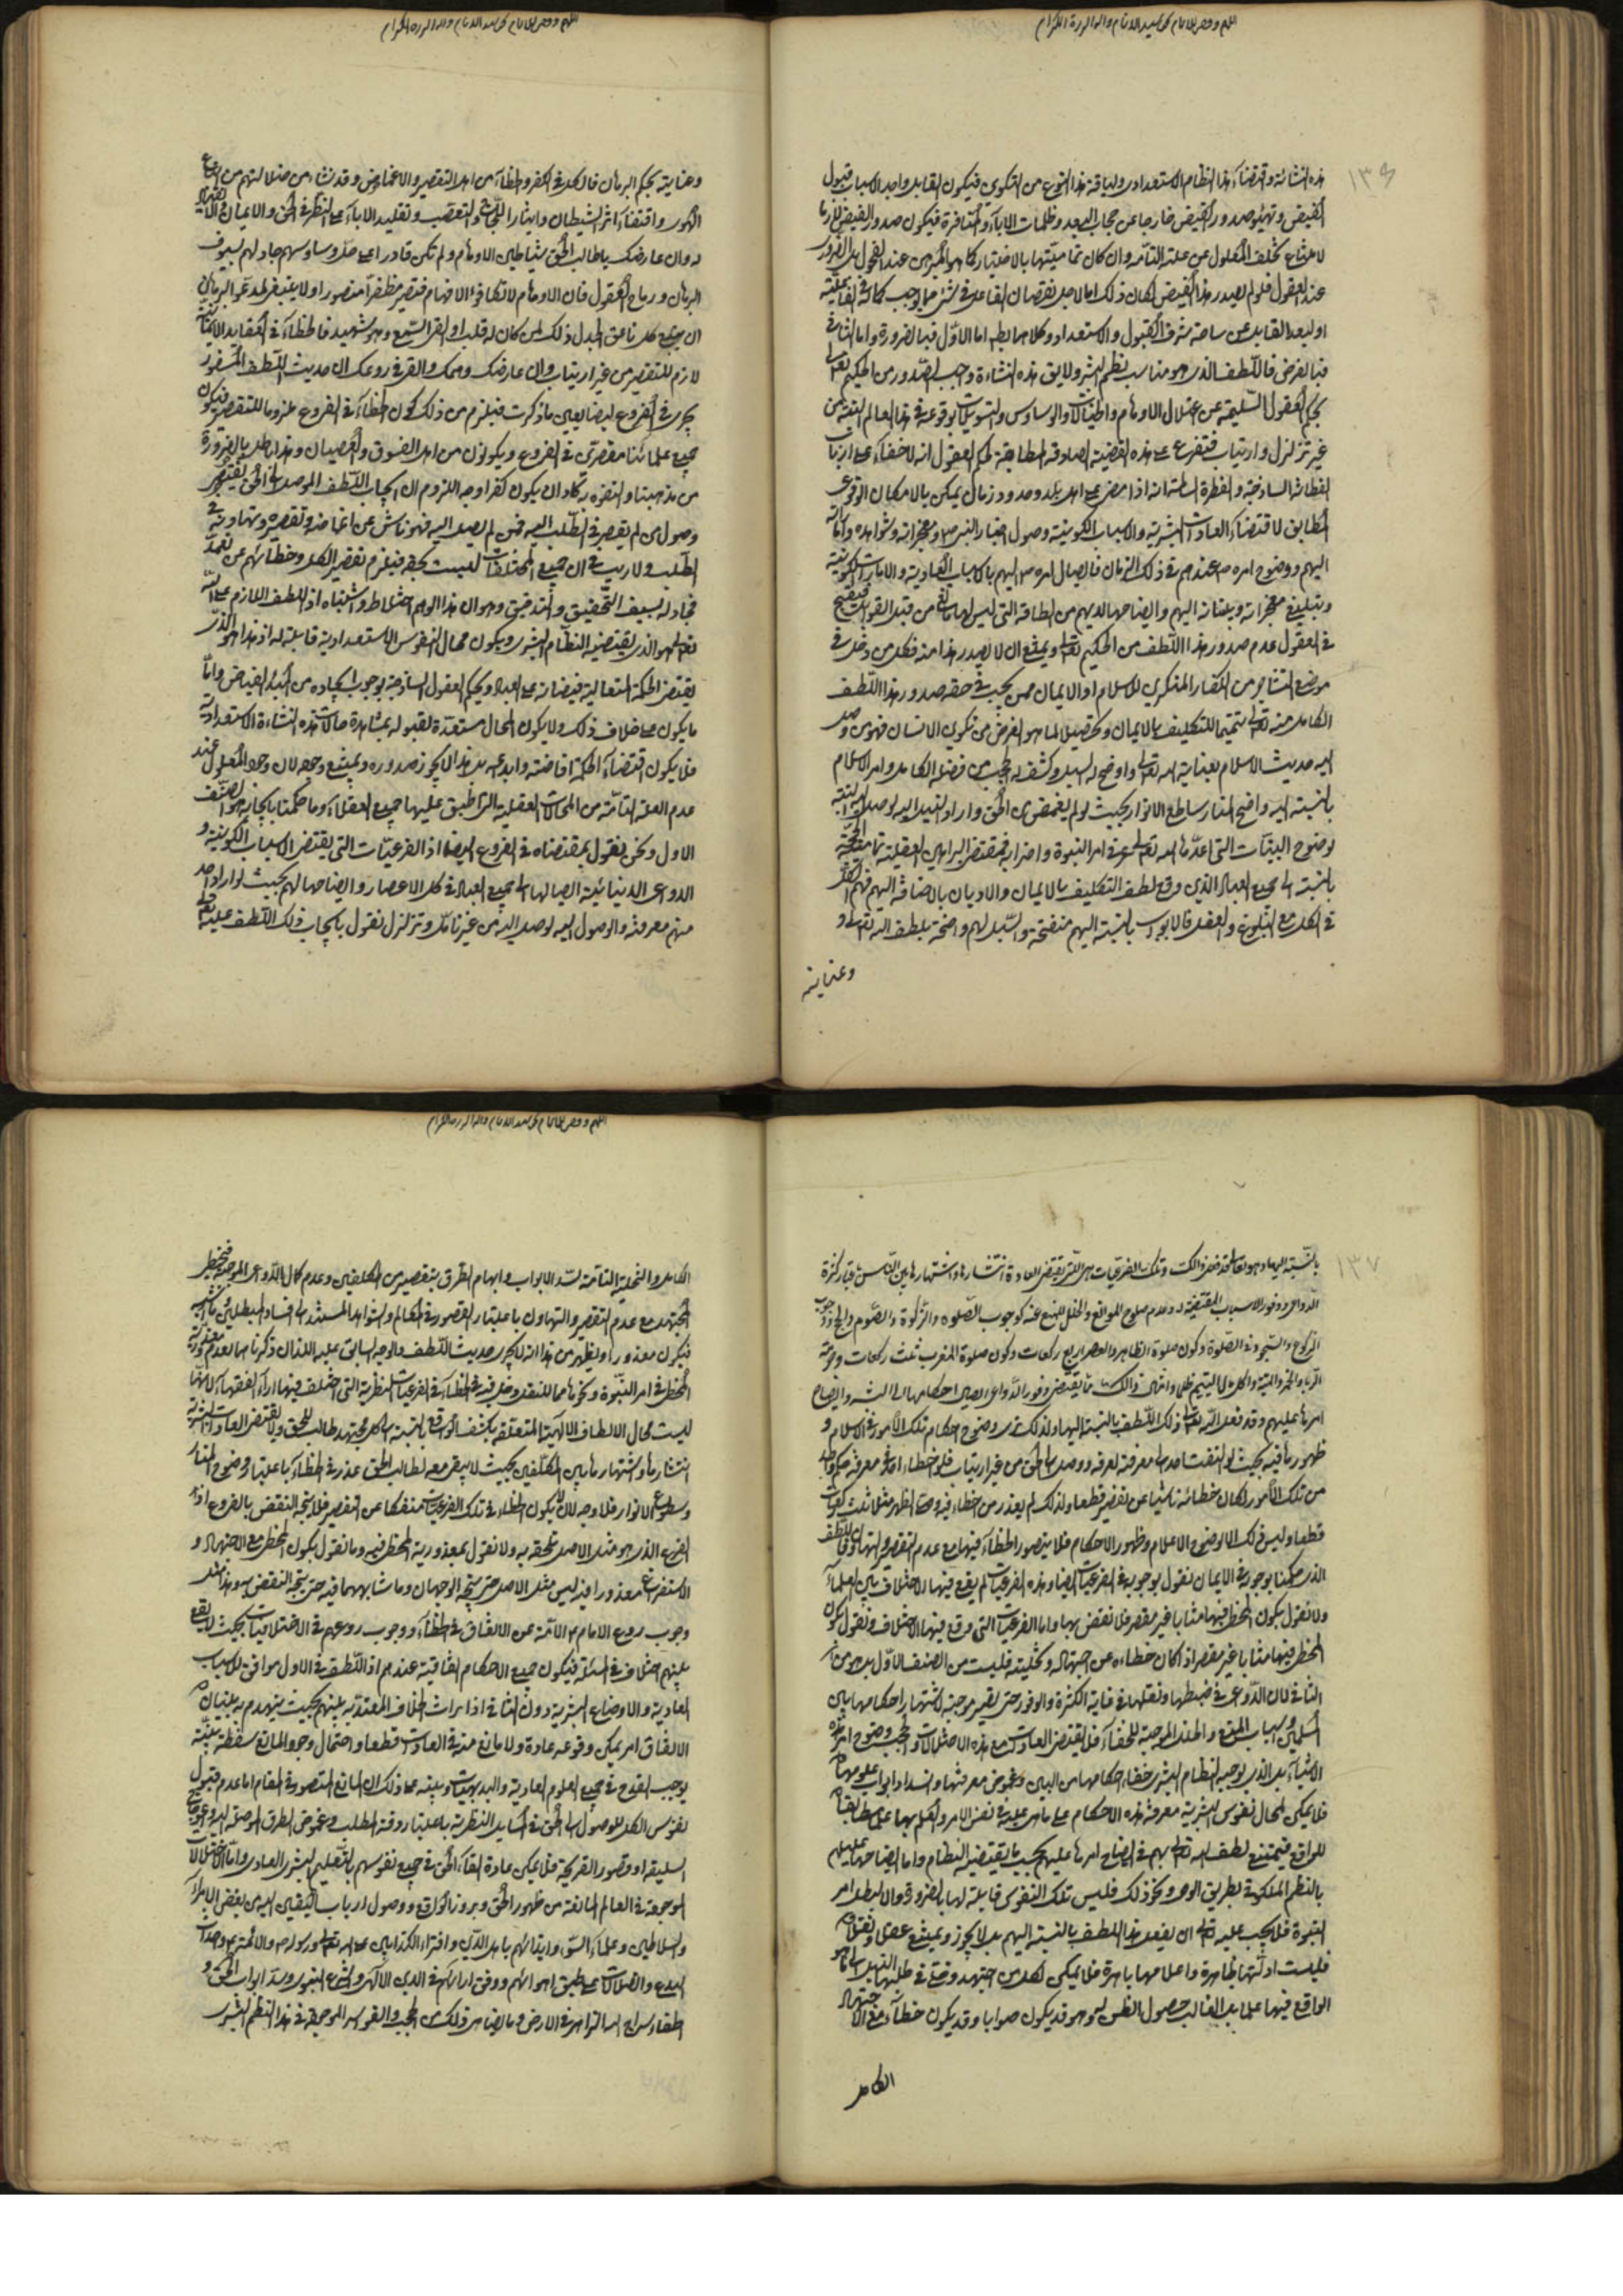 اللهم وفقني للاتمام بحق سيد الانام واله البررة الكرام
١٣٦
هذه النشأة واقتضاء هذا النظام الاستعدادي ولياقة هذا النوع من التكوين فيكون القابل واجد الاسباب قبول
الفيض وتهيؤ صدور الفيض خارجا عن حجاب البعد وظلمات الاباء والمنافرة فيكون صدور الفيض لازما
لامتناع تخلف المعلول عن علته التامة وان كان تماميتها بالاختيار كما هو المبرهن عند الفحول بل الضرور
عند العقول فلو لم يصدر هذا الفيض لكان ذلك اما لاجل نقصان الفاعل في شيء مما يوجب كماله في الفاعلية
او لبعد القابل عن ساحة شرف القبول والاستعداد وكلاهما باطل اما الاول فبالضرورة واما الثاني
فبالفرض فاللطف الذي هو مناسب بنظم البشر ولايق هذه النشاءة واجب الصدور من الحكيم تعالى
بحكم العقول السليمة عن اختلال الاوهام والخيالات والوساوس والتسويلات بوقوعه في هذا العالم البتة من
غير تزلزل وارتياب فتفرع على هذه القضية الصادقة المطابقة لحكم العقول انه لا خفاء على ارباب
الفطانة الساذجة والفطرة السالمة انه اذا مضى على اهل بلد وحدود زمان يمكن بالامكان الوقوعي
المطابق لاقتضاء العادات البشرية والاسباب الكونية وصول اخبار النبي ص ومعجزاته وشواهده واياته
اليهم ووضوح امره ص عندهم في ذلك الزمان فايصال امره ص اليهم بالاسباب العادية والامارات الكونية
وتبليغ معجزاته وبيناته اليهم وايضاحها لديهم من الطاقة التي ليس لها مانع من قبل القوابل فيقبح
في العقول عدم صدور هذا اللطف من الحكيم تعالى ويمتنع ان لا يصدر هذا منه فكل من دخل في
موضع التشاجر من الكفار المنكرين للاسلام او الايمان ممن يجب في حقه صدور هذا اللطف
الكامل منه تعالى تتميما للتكليف بالايمان وتحصيلا لما هو الغرض من تكوين الانسان فهو من وصل
اليه حديث الاسلام بعناية الله تعالى واوضح له السبيل وكشف له الحجب من فضله الكامل وامر الاسلام
بالنسبة اليه واضح المنار ساطع الانوار بحيث لو لم يغمض من الحق واراد السبيل اليه لوصل اليه البتة
لوضوح البينات التي اعدها الله تعالى في امر النبوة واضرابه فمقتضى البراهين العقلية تمامية الحجة
بالنسبة الى جميع العباد الذين وقع لطف التكليف بالايمان والاديان بالاضافة اليهم فهم
في الكل مع البلوغ والعقل فالابواب بالنسبة اليهم منفتحة والسبل لهم واضحة بلطف الله تعالى و
وعنايته
اللهم وفقني للاتمام بحق سيد الانام واله البررة الكرام
وعنايته بحكم البرهان فالكل في الكفر والخطاء من اهل التقصير والاغماض وقد نشاء من ضلالتهم من اتباع
الهوى واقتفاء اثر الشيطان وايثار اللجاج والتعصب وتقليد الاباء على النظر في الحق والايمان
له وان عارضك يا طالب الحق شياطين الاوهام ولم تكن قادرا على حل وساوسهم جادلهم بسيوف
البرهان ورماح العقول فان الاوهام لا تكافؤ الافهام فتصير مظفرا منصورا ولا ينبغي للمدعي البرهان
ان يصغي كل ناعق الجدل ذلك لمن كان له قلب او القى السمع وهو شهيد فالخطاء في العقايد الايمانية
لازم للتقصير من غير ارتياب وان عارضك وهمك والقى في روعك ان حديث اللطف المسفور
يجري في الفروع ايضا بعين ما ذكرت فيلزم من ذلك كون الخطاء في الفروع ملزوما للتقصير فيكون
جميع علمائنا مقصرين في الفروع ويكونون من اهل الفسوق والعصيان وهذا باطل بالضرورة
من مذهبنا والتفوه به كاد ان يكون كفرا وجه اللزوم ان ايجاب اللطف الموصل الى الحق يقتضي
وصول من لم يقصر في الطلب اليه فمن لم يصل اليه فهو ناش عن اغماضه وتقصيره وتهاونه في
الطلب ولا ريب في ان جميع المختلفات ليست بحق فيلزم تقصير الكل وخطائهم عن تعمد
فجادله بسيف التحقيق والتدقيق وهو ان هذا الوهم اختلاط واشتباه اذ اللطف اللازم على الله
تعالى هو الذي يقتضيه النظام البشري ويكون محال النفوس الاستعدادية قابلة له اذ هذا هو الذي
يقتضي الحكمة المتعالية فيضانه على العباد ويحكم العقول الساذجة بوجوب ايجاده من المبدء الفياض واما
ما يكون على خلاف ذلك ولا يكون المحال مستعدة لقبوله بمشاهدة حالات هذه النشاءة الاستعدادية
فلا يكون اقتضاء الحكمة افاضته وابداعه بل هذا لا يجوز صدوره ويمتنع وجوده لان وجود المعلول عند
عدم العلة التامة من المحالات العقلية التي اطبق عليها جميع العقلاء وما حكمنا بايجابه هو الصنف
الاول ونحن نقول بمقتضاه في الفروع ايضا اذ الفرعيات التي يقتضي الاسباب الكونية و
الدواعي الدينائية ايصالها الى جميع العباد في كل الاعصار وايضاحها لهم بحيث لو اراد احد
منهم معرفته والوصول اليه لوصل اليه من غير تامل وتزلزل نقول بايجاب ذلك اللطف عليه تعالى
١٣٧
بالنسبة اليها وهو تعالى قد فعل ذلك وتلك الفرعيات هي التي يقتضي العادة انتشارها واشتهارها بين الناس باعتبار كثرة
الدواعي ووفور الاسباب المقتضية له وعدم صلوح الموانع والخلل للمنع عنه كوجوب الصلوة والزكوة والصوم والحج ووجوب
الركوع والسجود في الصلوة وكون صلوة الظهر والعصر اربع ركعات وكون صلوة المغرب ثلث ركعات وحرمة
الربا والخمر والميتة واكل مال اليتيم ظلما وامثال ذلك مما يقتضي وفور الدواعي ايصال احكامها الى البشر وايضاح
امرها عليهم وقد فعل الله تعالى ذلك اللطف بالنسبة اليها ولذلك ترى وضوح احكام تلك الامور في الاسلام و
ظهورها فيه بحيث لو التفت احد الى معرفته لعرفه ووصل الى الحق من غير ارتياب فلو اخطاء احد في معرفة حكم واحد
من تلك الامور لكان خطائه ناشيا عن تقصير قطعا ولذلك لم يعذر من اخطاء فيه وصلى الظهر مثلا ثلث ركعات
قطعا وليس ذلك الا لوضوح الاعلام وظهور الاحكام فلا يتصور الخطاء فيها مع عدم التقصير والتهاون فاللطف
الذي حكمنا بوجوبه في الايمان نقول بوجوبه في الفرعيات ايضا وهذه الفرعيات لم يقع فيها الاختلاف بين العلماء
ولا نقول بكون المخطي فيها مثابا غير مقصر فلا نقض بها واما الفرعيات التي وقع فيها الاختلاف ونقول بكون
المخطي فيها مثابا غير مقصر اذا كان خطاءه عن اجتهاد وتخلية فليست من الصنف الاول بل هو من
الثاني لان الدواعي في ضبطها ونقلها في غاية الكثرة والوفور حتى يصير موجبة لاشتهار احكامها بين
المسلمين واسباب المنع والخلل الموجبة للخفاء فلا يقتضي العادات مع هذه الاختلالات والحجب وضوح امر هذه
الاشياء بل الذي يوجبه النظام البشري خفاء احكامها من البين وغموض معرفتها وانسداد ابواب علومها
فلا يمكن لمحال نفوس البشرية معرفة هذه الاحكام على ما هي عليه في نفس الامر والعلم بها علما مطابقا
للواقع فيمتنع لطف الله تعالى بهم في ايضاح امرها عليهم بحسب ما يقتضيه النظام واما ايضاحها عليهم
بالنظم الملكوتي بطريق الوحي ونحو ذلك فليس تلك النفوس قابلة لها بالضرورة والا لبطل امر
النبوة فلا يجب عليه تعالى ان يفعل هذا اللطف بالنسبة اليهم بل لا يجوز ويمتنع عقلا ونقلا
فليست ادلتها ظاهرة واعلامها باهرة فلا يمكن لكل من اجتهد وفتح في طلبها النيل الى ما هو
الواقع فيها علما بل الغالب حصول الظن به وهو قد يكون صوابا وقد يكون خطاء مع الاجتهاد
الكامل
اللهم وفقني للاتمام بحق سيد الانام واله البررة الكرام
الكامل والتخلية التامة لسد الابواب وابهام الطرق بتقصير من المكلفين وعدم كمال الدواعي الموجبة فيخطي
المجتهد مع عدم التقصير والتهاون باعتبار القصور في المعالم والشواهد المستند الى افساد المبطلين
فيكون معذورا ويظهر من هذا انه لا يجري حديث اللطف والوجه السابق عليه اللذان ذكرناهما لعدم معذورية
المخطي في امر النبوة ونحوها مما للعقل دخل فيه في الخطاء في الفرعيات النظرية التي اختلف فيها اراء الفقهاء لانها
ليست محال الالطاف الالهية المتعلقة بكشف الواقع بالنسبة الى كل مجتهد طالب للحق ولا يقتضي العادات البشرية
انتشارها واشتهارها بين المكلفين بحيث لا يبقى معه لطالب الحق عذر في الخطاء باعتبار وضوح المنار
وسطوع الانوار فلا وجه لان لا يكون الخطاء في تلك الفرعيات منفكا عن التقصير فلا يتجه النقض بالفروع اذ
الفرع الذي هو مثل الاصل نلحقه به ولا نقول بمعذورية المخطي فيه وما نقول بكون المخطي مع الاجتهاد و
الاستفراغ معذورا فيه ليس مثل الاصل حتى يتجه الوجهان وما شابههما فيه حتى يتجه النقض به وهذا مثل
وجوب ردع الامام ع الامة عن الاتفاق في الخطاء ووجوب ردعهم في الاختلافيات بحيث لا يقع
بينهم اختلاف في المسئلة فيكون جميع الاحكام اتفاقية عندهم اذ اللطف في الاول موافق للاسباب
العادية والاوضاع البشرية دون الثاني اذا تراث الخلاف المعتد به بينهم بحيث ينهدم به بنيان
الاتفاق امر يمكن وقوعه عادة ولا مانع منه في العادات قطعا واحتمال وجود المانع سفسطة بينة
يوجب القدح في جميع العلوم العادية والبديهيات وينبه على ذلك ان المانع المتصور في المقام اما عدم قبول
نفوس الكل للوصول الى الحق في المسايل النظرية باعتبار دقة المطلب وغموض الطرق الموصلة اليه واعوجاج
السليقة او قصور القريحة فلا يمكن عادة القاء الحق في جميع نفوسهم بالتعليم البشري العادي واما الاختلالات
الموجودة في العالم المانعة من ظهور الحق وبروز الواقع ووصول ارباب اليقين اليه من بغض الامراء
والسلاطين وعلماء السوء وايذائهم باهل الدين وافتراء الكذابين على الله تعالى ورسوله ص والائمة ع واحداث
البدع والضلالات على طبق اهوائهم ووفق ارائهم في الدين الالهي والشرع النبوي وسد ابواب الحق و
اطفاء سراج الله الزاهر في الارض وما يضاهي ذلك من الحجب والقواسر الموجودة في هذا النظم البشري